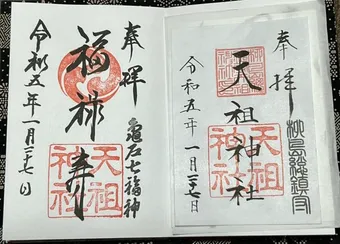 奉拝
天祖神社
令和五年一月二十七日
天祖
神社
奉拝
亀戸七福神
福禄寿
令和五年一月二十七日
天祖
神社